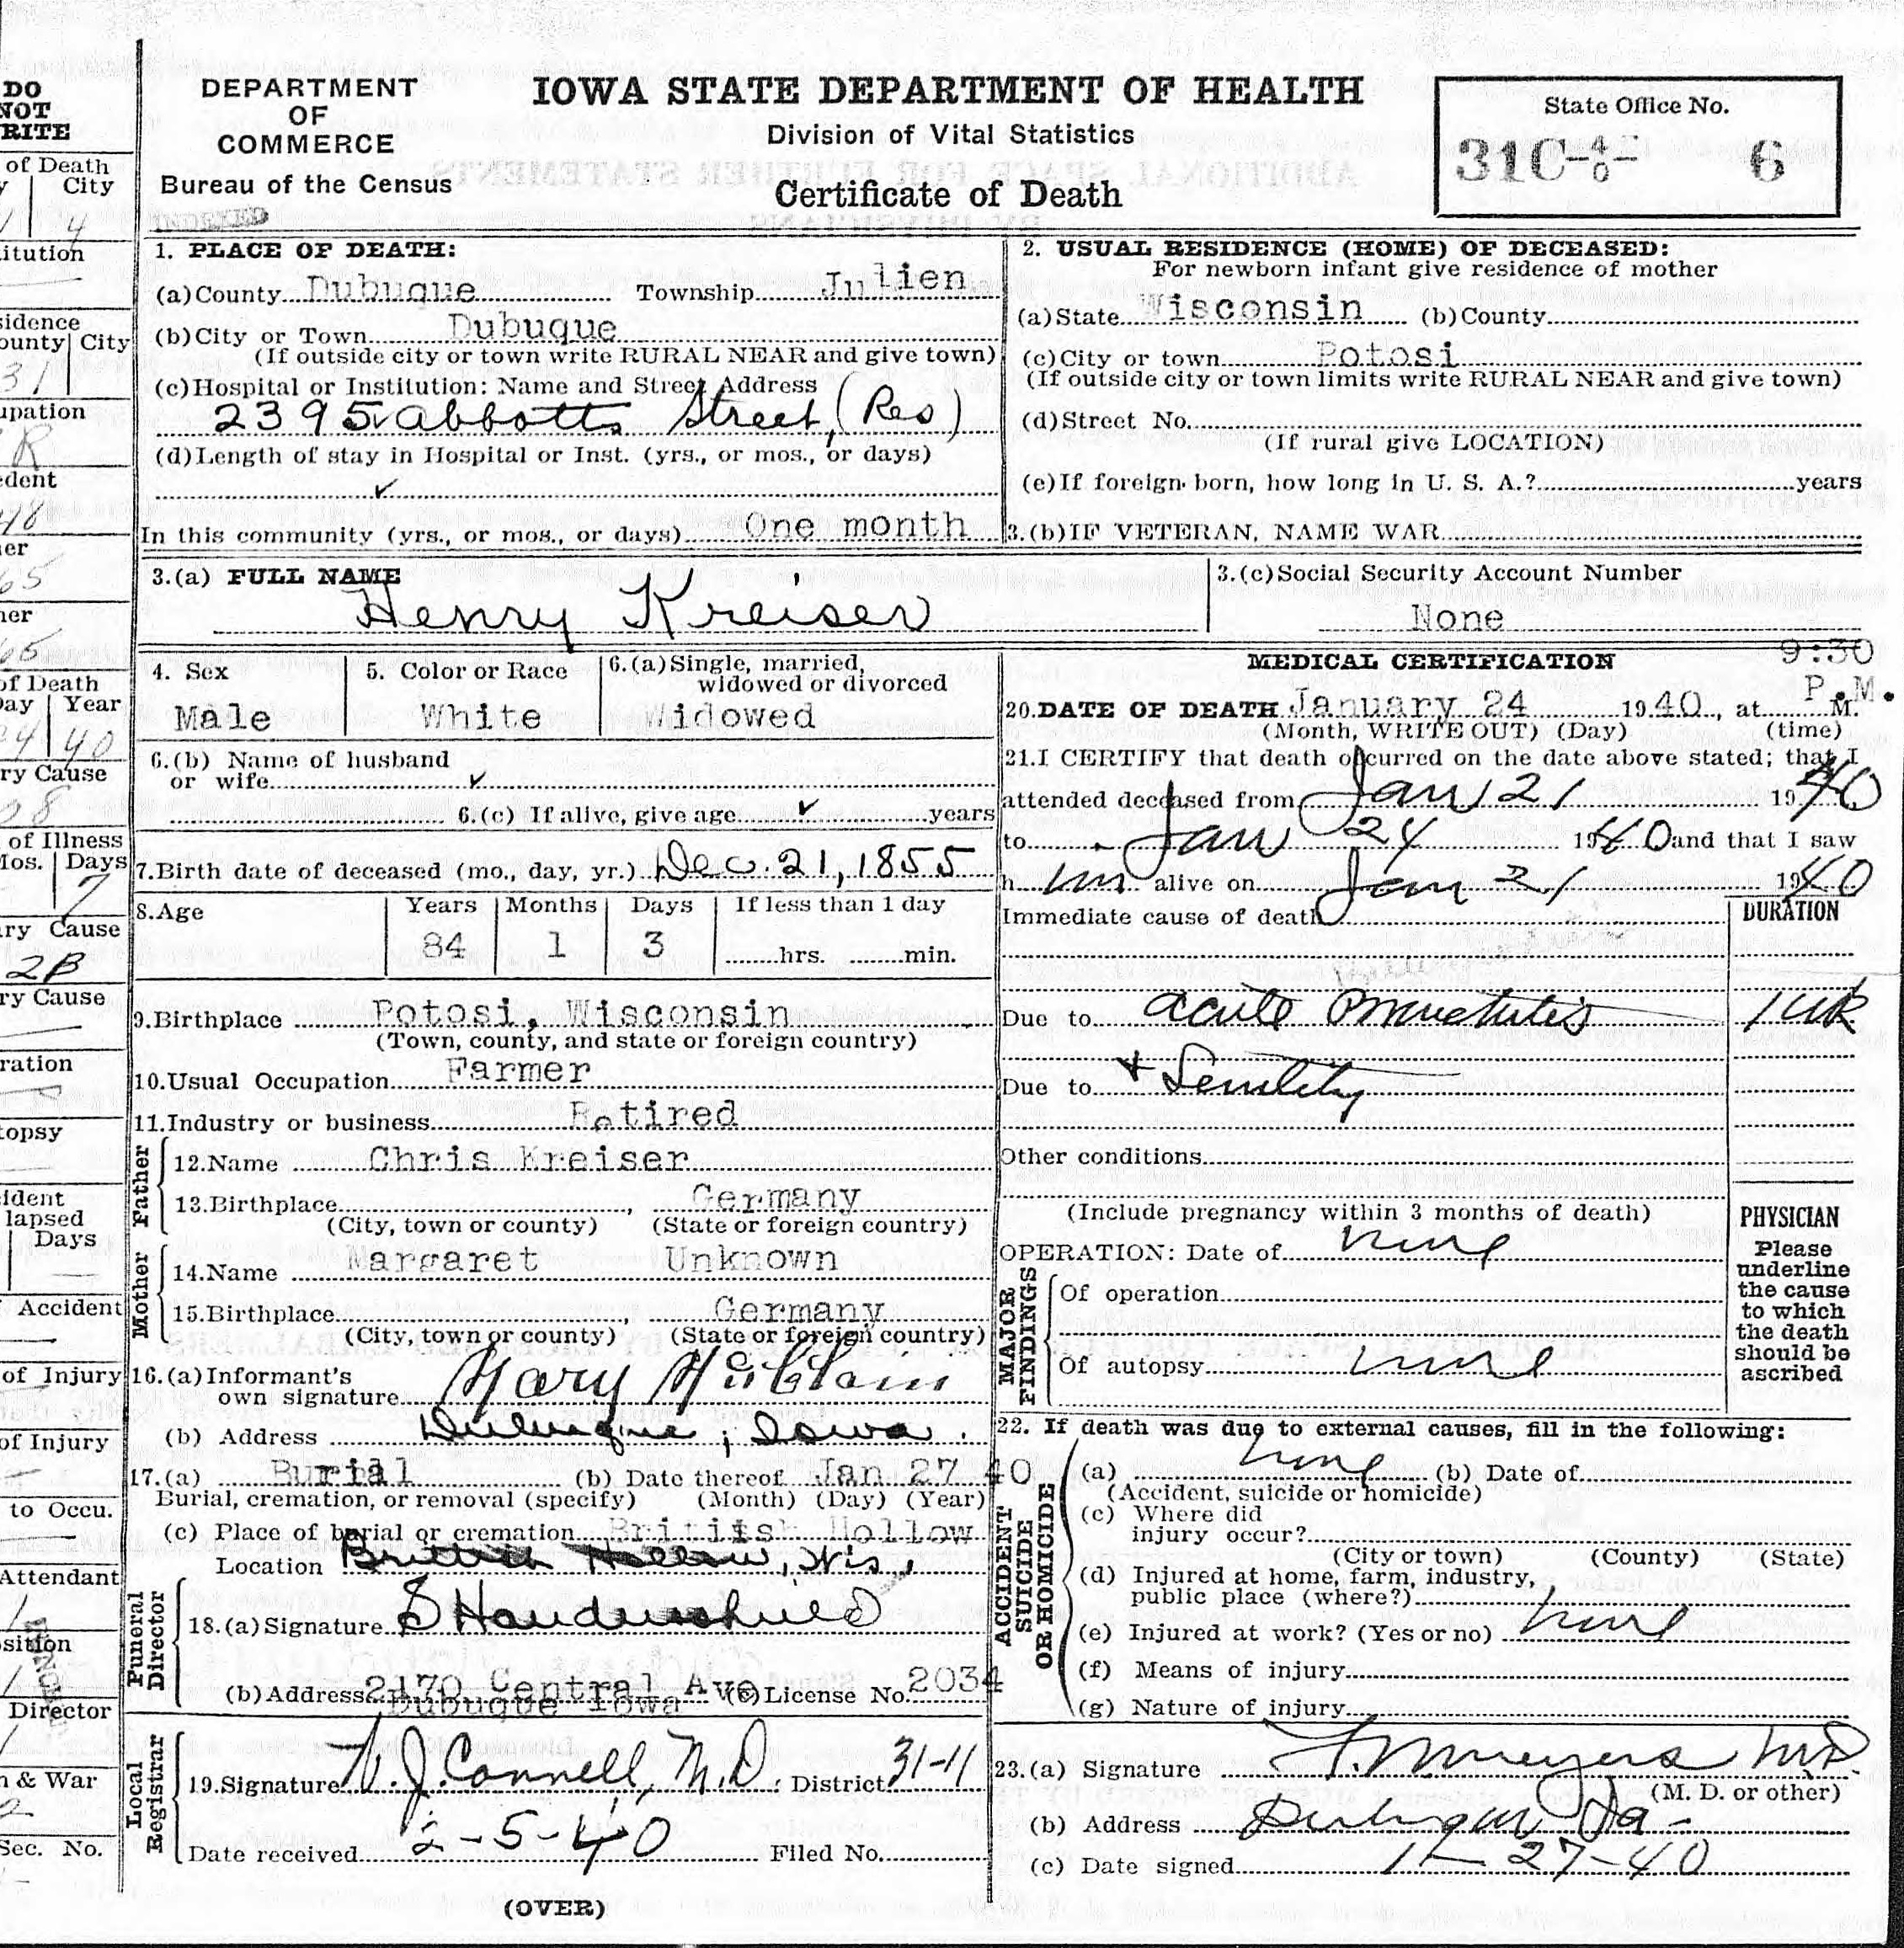 DO
NOT
RITE
of Death
City
4
itution
sidence
ounty City
31
upation
R
edent
her
65
her
65
of Death
Day Year
24 40
ry Cause
08
of Illness
Mos. Days
7
ary Cause
2B
ry Cause
ration
topsy
ident
lapsed
Days
Accident
of Injury
of Injury
to Occu.
Attendant
1
sition
1
Director
n & War
2
Sec. No.
DEPARTMENT
OF
COMMERCE
Bureau of the Census
INDEXED
IOWA STATE DEPARTMENT OF HEALTH
Division of Vital Statistics
Certificate of Death
State Office No.
31C-40- 6
1. PLACE OF DEATH:
(a) County Dubuque Township Julien
(b) City or Town Dubuque
(If outside city or town write RURAL NEAR and give town)
(c) Hospital or Institution: Name and Street Address
2395 Abbotts Street, (Res)
(d) Length of stay in Hospital or Inst. (yrs., or mos., or days)
✓
In this community (yrs., or mos., or days) One month
2. USUAL RESIDENCE (HOME) OF DECEASED:
For newborn infant give residence of mother
(a) State Wisconsin (b) County
(c) City or town Potosi
(If outside city or town limits write RURAL NEAR and give town)
(d) Street No.
(If rural give LOCATION)
(e) If foreign born, how long in U. S. A.? years
3.(b) IF VETERAN, NAME WAR
3.(a) FULL NAME
Henry Kreiser
3.(c) Social Security Account Number
None
4. Sex
Male
5. Color or Race
White
6.(a) Single, married,
widowed or divorced
Widowed
6.(b) Name of husband
or wife ✓
6.(c) If alive, give age ✓ years
7. Birth date of deceased (mo., day, yr.) Dec. 21, 1855
8. Age Years Months Days If less than 1 day
84 1 3 hrs. min.
9. Birthplace Potosi, Wisconsin
(Town, county, and state or foreign country)
10. Usual Occupation Farmer
11. Industry or business Retired
Father
12. Name Chris Kreiser
13. Birthplace , Germany
(City, town or county) (State or foreign country)
Mother
14. Name Margaret Unknown
15. Birthplace , Germany
(City, town or county) (State or foreign country)
16.(a) Informant's
own signature Mary
(b) Address Dubuque, Iowa.
17.(a) Burial (b) Date thereof Jan 27 40
Burial, cremation, or removal (specify) (Month) (Day) (Year)
(c) Place of burial or cremation British Hollow
Location British Hollow, Wis,
Funeral
Director
18.(a) Signature
(b) Address 2170 Central Ave (c) License No. 2034
Dubuque Iowa
Local
Registrar
19. Signature J. Connell, M.D. District 31-11
Date received 2-5-40 Filed No.
(OVER)
MEDICAL CERTIFICATION
9:30
P.M.
20. DATE OF DEATH January 24 1940, at M.
(Month, WRITE OUT) (Day) (time)
21. I CERTIFY that death occurred on the date above stated; that I
attended deceased from Jan 21 1940
to Jan 24 1940 and that I saw
him alive on Jan 21 1940
Immediate cause of death
DURATION
Due to acute 1 wk
Due to + Senility
Other conditions
(Include pregnancy within 3 months of death)
OPERATION: Date of none
MAJOR
FINDINGS
Of operation
Of autopsy none
PHYSICIAN
Please
underline
the cause
to which
the death
should be
ascribed
22. If death was due to external causes, fill in the following:
ACCIDENT
SUICIDE
OR HOMICIDE
(a) none (b) Date of
(Accident, suicide or homicide)
(c) Where did
injury occur?
(City or town) (County) (State)
(d) Injured at home, farm, industry,
public place (where?)
(e) Injured at work? (Yes or no) none
(f) Means of injury
(g) Nature of injury
23.(a) Signature Meyers M.D.
(M. D. or other)
(b) Address Dubuque Ia-
(c) Date signed 1-27-40